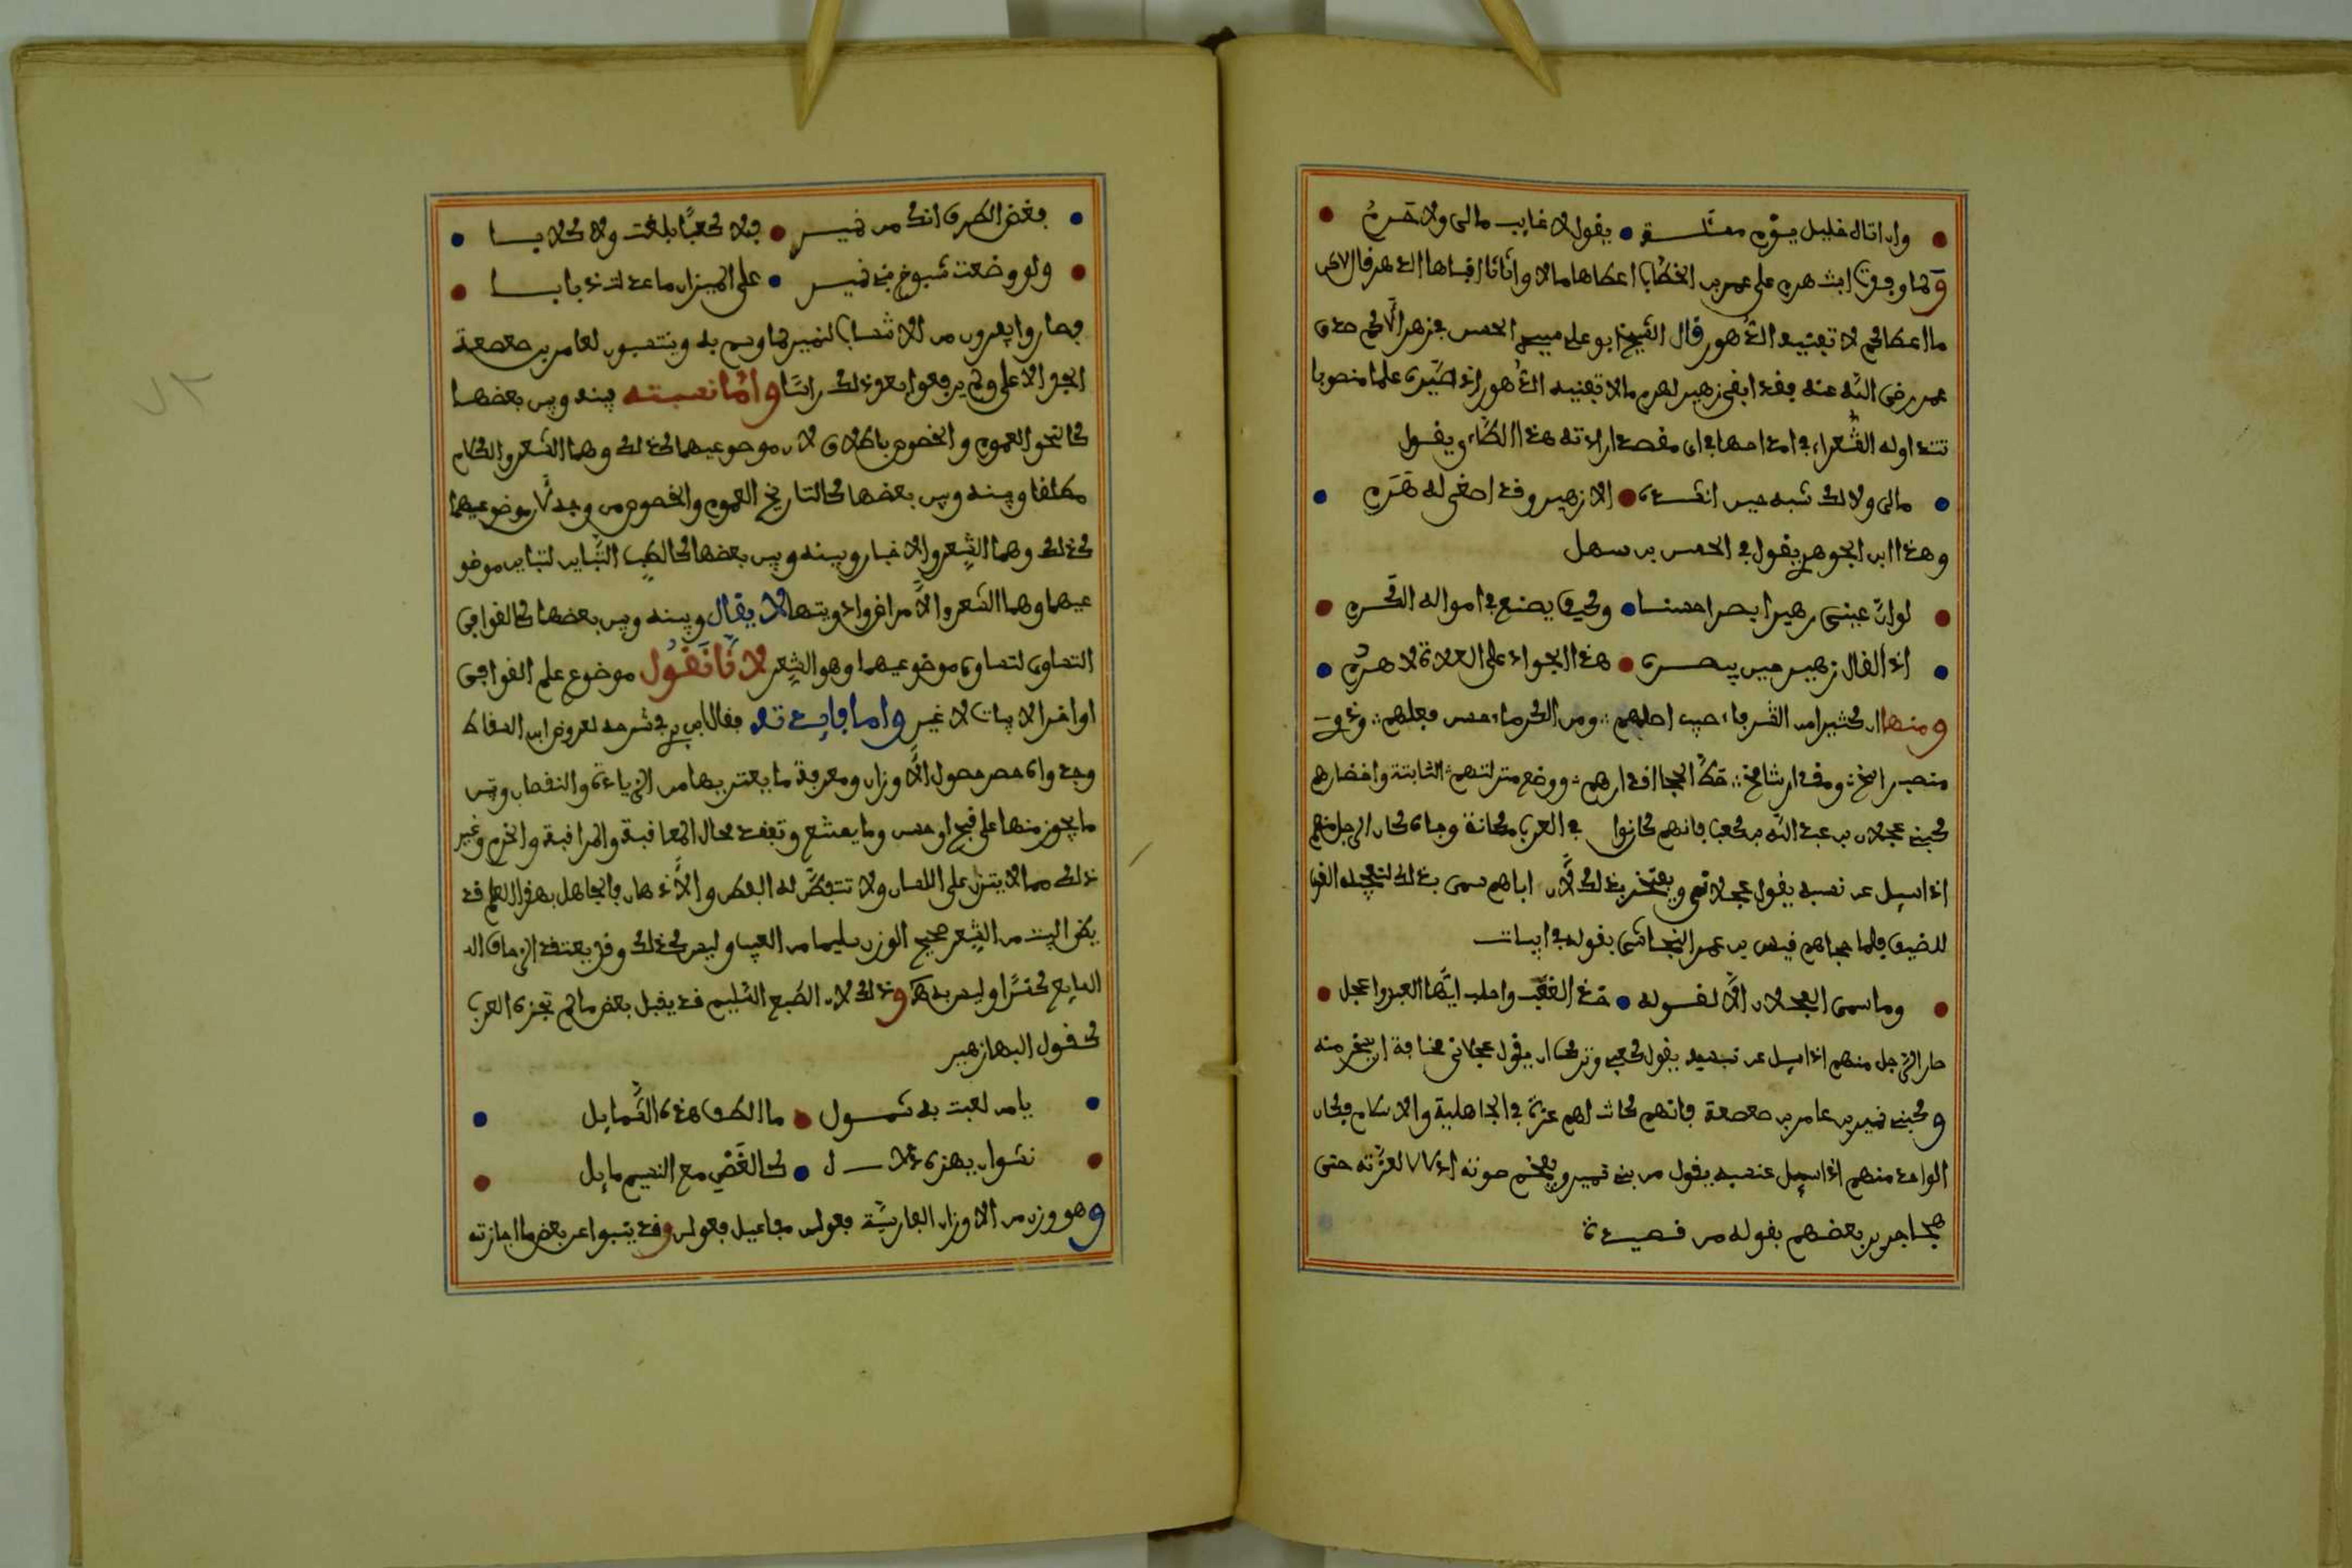 وان اتاه خليل يوم مسألة يقول لا غايب مالى ولا حرم
ولما وفدت ابنت هرم على عمر بن الخطاب اعطاها مالا واثاثا افناها الدهر قال لاكن
ما اعطاكم لا تفنيه الدهور قال الشيخ ابو على حسن فزهر الاكم حدى
عمر رضى الله عنه فقد ابقى زهير لهرم مالا تفنيه الدهور اذ صيره علما منصوبا
تتداوله الشعراء فى امداحها فى اى مقصد ارادته هذا الطاء ويقول
مالى ولا لك شبه حين انشده الا زهير وقد اصغى له هرم
وهذا ابن الجوهرى يقول فى الحسن بن سهل
لو ان عينى زهير ابصرا حسنا وكيف يصنع فى امواله الكرم
اذا لقال زهير حين يبصره هذا الجواد على العلاة لا هرم
ومنها ان كثيرا من الشرفاء حسب اصلهم ومن الكرماء حسن فعلهم وذوى
منصب راسخ ومقدار شامخ حط الهجا اقدارهم ووضع منزلتهم الثابتة واخضارهم
كبنى عجلان بن عبد الله بن كعب فانهم كانوا فى العرب بمكانة وجاه كان الرجل منهم
اذا سيل عن نسبه يقول عجلانى ويفتخر بذلك لان اباهم سمى بذلك لتعجله القرا
للضيف فلما هجاهم قيس بن عمر النجاشى بقوله فى ابيات
وما سمى العجلان الا لقوله خذ القعب واحلب ايها العبد واعجل
صار الرجل منهم اذا سيل عن نسبه يقول كعبى وترك ان يقول عجلانى مخافة ان يسخر منه
وكبنى نمير بن عامر بن صعصعة فانهم كانت لهم عزة فى الجاهلية والاسلام فكان
الواحد منهم اذا سيل عن نسبه يقول من بنى نمير ويفخم صوته ادلالا لعزته حتى
هجا جرير بعضهم بقوله من قصيدة
فغض الطرف انك من نمير فلا كعبا بلغت ولا كلابا
ولو وضعت شيوخ بنى نمير على الميزان ما عدلت ذبابا
فصاروا يفرون من الانتساب لنمير وينتسبون لعامر بن صعصعة
الجد الاعلى ولم يرفعوا بعد ذلك راسا واما نسبته بينه وبين بعضها
كالنحو العموم والخصوص باطلاق لان موضوعيهما كذلك وهما الشعر والكلام
مطلقا وبينه وبين بعضها كالتاريخ العموم والخصوص من وجه لان موضوعيهما
كذلك وهما الشعر والاخبار وبينه وبين بعضها كالطب التباين لتباين موضو
عيهما وهما الشعر والامراض وادويتها لا يقال وبينه وبين بعضها كالقوافى
التساوى لتساوى موضوعيهما وهو الشعر لانا نقول موضوع علم القوافى
اواخر الابيات لا غير واما فايدته فقال ابن برى فى شرحه لعروض ابن السقاط
وجدواه حصر حصول الاوزان ومعرفة ما يعتريها من الزيادة والنقصان وتبيين
ما يجوز منها على قبح او حسن وما يمتنع وتفقد محال المعاقبة والمراقبة والخرم وغير
ذلك مما لا يتزن على اللسان ولا تتفطن له الفطر والاذهان فالجاهل بهذا العلم قد
يظن البيت من الشعر صحيح الوزن سليما من العيب وليس كذلك وقد يعتقد الزحاف
السايغ كسرا وليس به وذلك لان الطبع السليم قد يقبل بعض ما لم تجزه العرب
كقول البها زهير
يا من لعبت به شمول ما الطف هذه الشمايل
نشوان يهزه دلال كالغصن مع النسيم مايل
وهو وزن من الاوزان الفارسية فعولن مفاعيل فعولن وقد ينبوا عن بعض ما اجازته